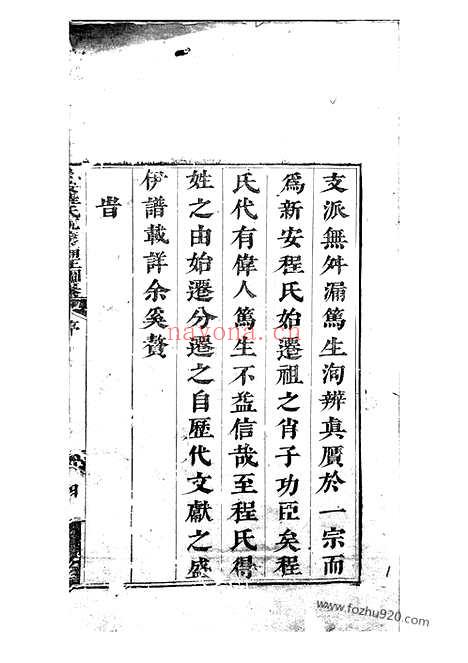 支派無舛漏篤生洵辨真贋於一宗而
爲新安程氏始遷祖之肖子功臣矣程
氏代有偉人篤生不益信哉至程氏得
姓之由始遷分遷之自歷代文獻之盛
伊譜載詳余奚贅
昔
序
四
nayona.cn
www.fozhu920.com